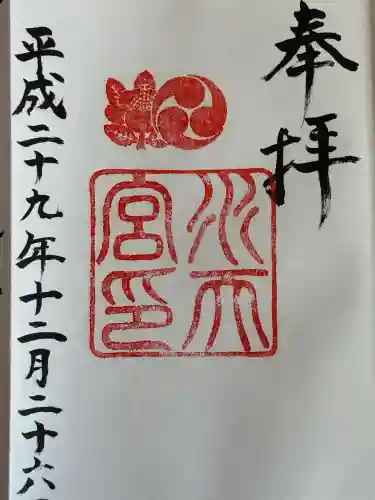 奉拝
水天宮印
平成二十九年十二月二十六日